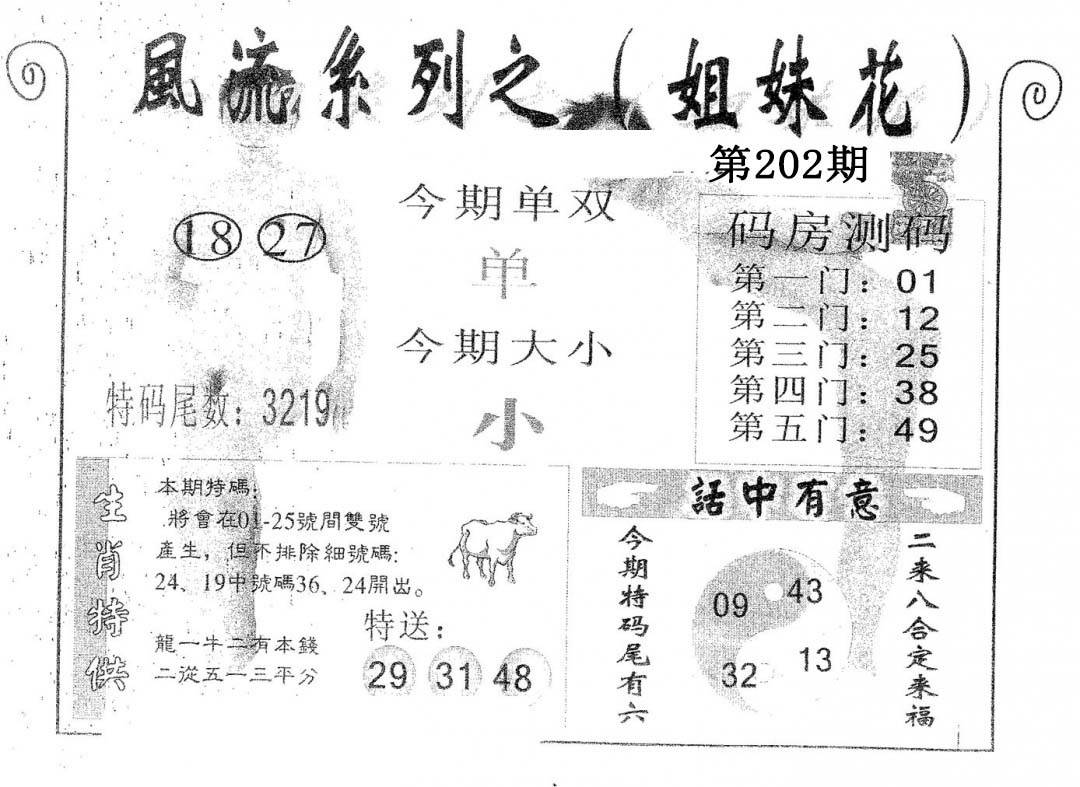 風流系列之（姐妹花）
第202期
18 27
今期单双
单
今期大小
小
特码尾数：3219
码房测码
第一门：01
第二门：12
第三门：25
第四门：38
第五门：49
生肖特供
本期特碼：
將會在01-25號間雙號
產生，但不排除細號碼:
24、19中號碼36、24開出。
龍一牛二有本錢
二從五一三平分
特送：
29 31 48
話中有意
今期特码尾有六
09 43
32 13
二来八合定来福